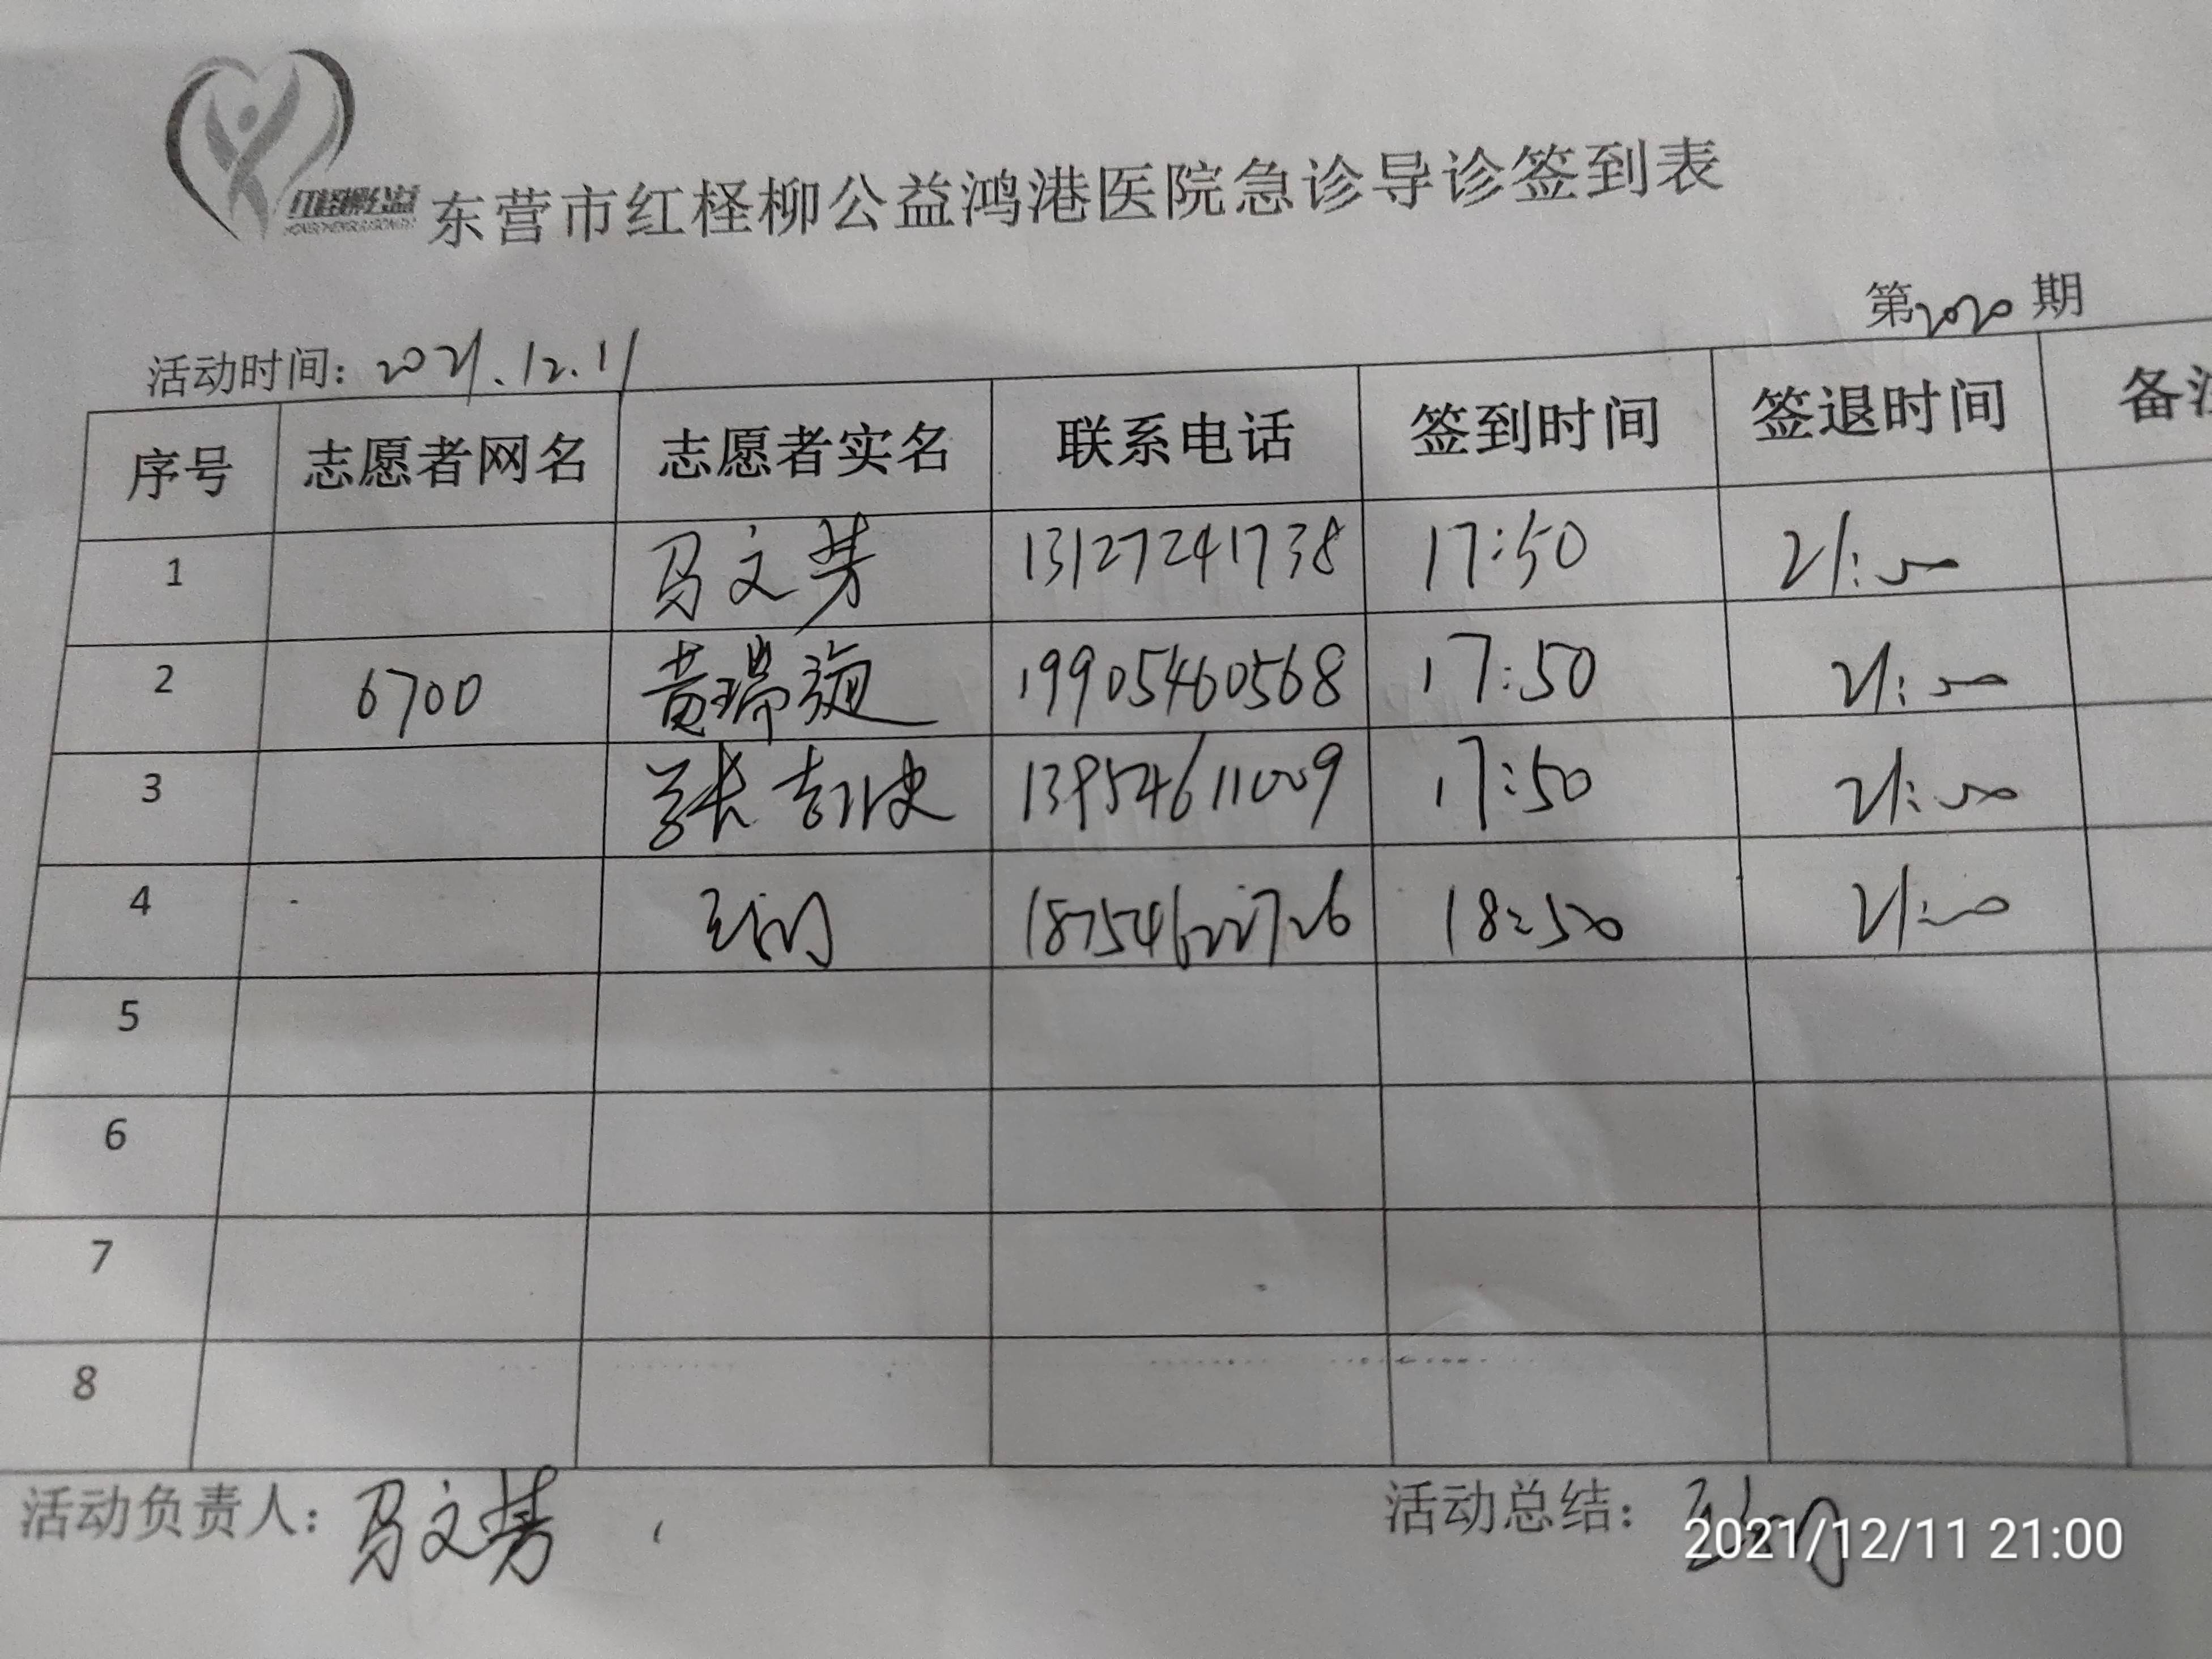 红柽柳公益
东营市红柽柳公益鸿港医院急诊导诊签到表
第2020期
活动时间: 2021.12.11
序号 志愿者网名 志愿者实名 联系电话 签到时间 签退时间 备注
1 马文芳 13127241738 17:50 21:00
2 6700 黄瑞璇 19905460568 17:50 21:00
3 13954611009 17:50 21:00
4 18754622726 18:50 21:00
5
6
7
8
活动负责人: 马文芳
活动总结:
2021/12/11 21:00